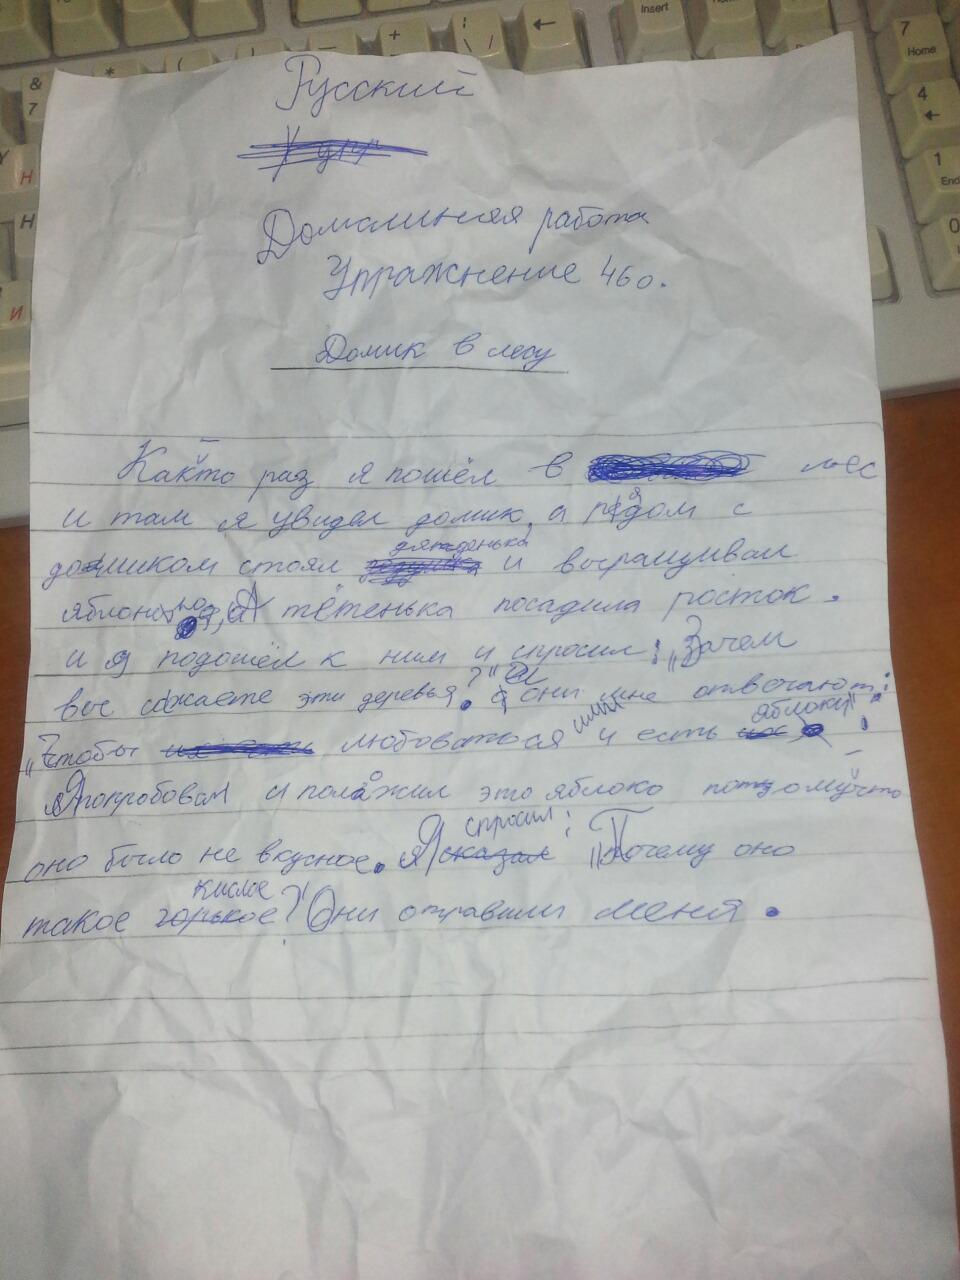 Русский
Домашняя работа
Упражнение 460.
Домик в лесу
Как-то раз я пошёл в лес
и там я увидел домик, а рядом с
домиком стоял дяденька и выращивал
яблоню, А тётенька посадила росток.
и я подошёл к ним и спросил: „Зачем
вы сажаете эти деревья?" а они мне отвечают:
„Чтобы любоваться ими и есть яблоки".
Я попробовал и положил это яблоко потому-что
оно было не вкусное. Я спросил: „Почему оно
такое кислое?" Они отравили меня.
7
Home
4
1
End
0
Insert
&
7
Н
И